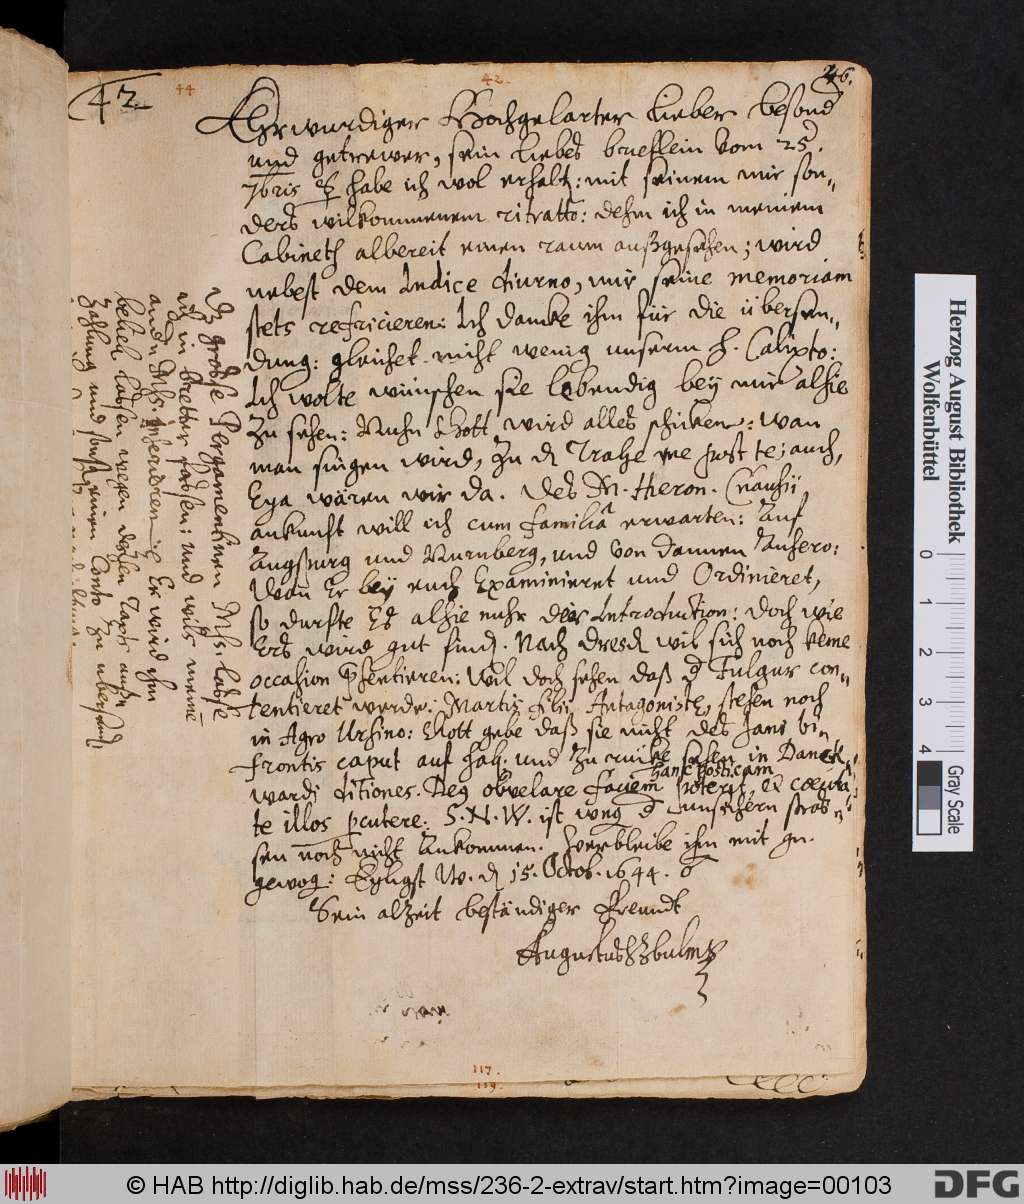 42.
44
42.
46.
Ehrwurdiger Hochgelarter Lieber besond
und getrewer, sein liebes brieflein vom 25.
7bris habe ich wol erhalt: mit seinem mir son„
ders wilkommenem ritratto: dehm ich in meinem
Cabineth albereit einen raum außgesehen; wird
nebest dem Indice diurno, mir seine memoriam
stets refricieren: Ich dancke ihm für die übersen„
dung: gleichet nicht wenig unserm H. Calixto:
Ich wolte wünschen sie lebendig bey mir alhie
zu sehen: Nuhn Gott wird alles schicken: wan
man singen wird, Zu d Trahe me post te; auch,
Eya wären wir da. Des M. Hieron.
ankunft will ich cum familiâ erwarten: Auf
Augspurg und Nurnberg, und von dannen Anhero:
Wan Er bey euch Examinieret und Ordinieret,
so durfte Es alhie nuhr der Introduction: doch wie
Ers wird gut find. Nach Dresd wil sich noch keine
occasion pręsentieren: Wil doch sehen daß d Fulgur con„
tentieret werde: Martis filij Antagonistę, stehen noch
in Agro Ursino: Gott gebe daß sie nicht des Jani bi„
frontis caput auf hab. und zu rucke sehen in
ditiones. obvelare faciem hanc posticam poterit, et
te illos percutere: S. N. W. ist weg d unsichern stras„
sen noch nicht ankommen. verbleibe ihm mit gn.
gewog: Eyligst W. d 15. Octob. 1644.
Sein alzeit beständiger Freundt
Augustus HZBuLmp
Dz große Pergamentinen Ms. laße
ich in bretter faßen: und wils meinē
andn Mss. Er wird ihm
belieb laßen wegen deßen Taxts
Zahlung und sonst einen Conto zu ubersend
117.
119.
Herzog August Bibliothek
Wolfenbüttel
0 1 2 3 4
Gray Scale
© HAB http://diglib.hab.de/mss/236-2-extrav/start.htm?image=00103
DFG